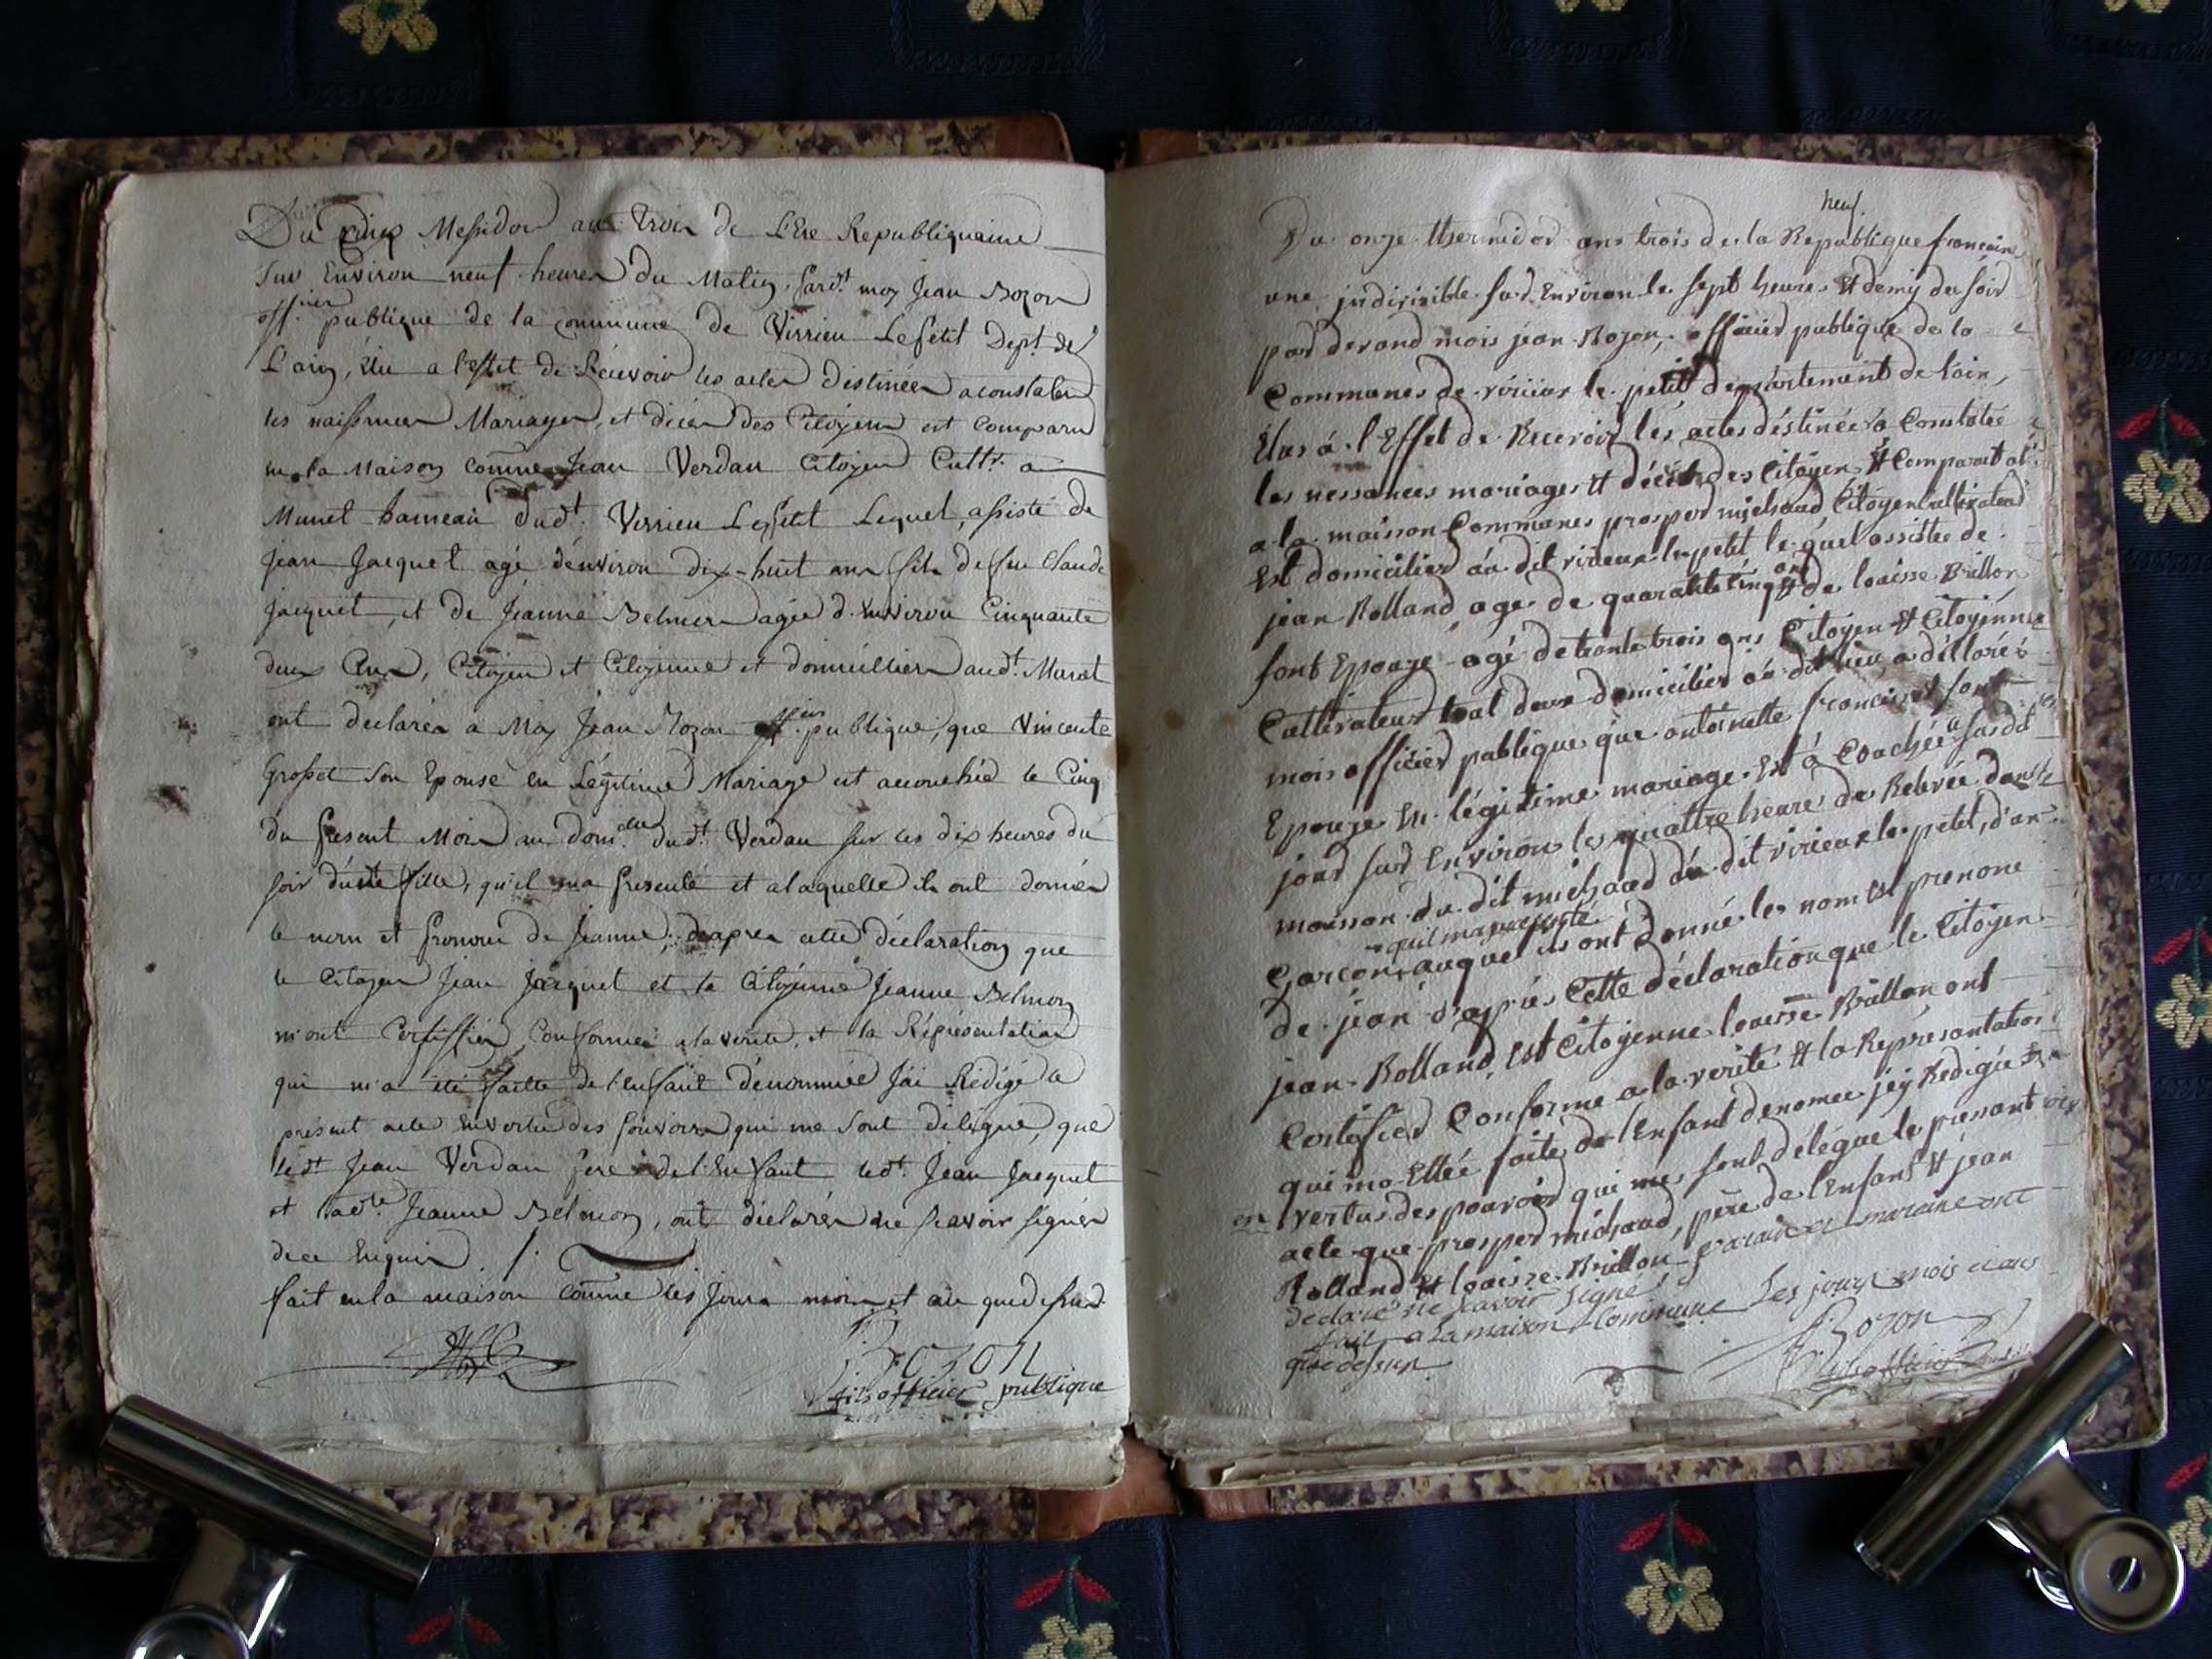 Du Messidor an trois de L'Ere Republiquaine
Sur Environ neuf heures du Matin, pard.t moy Jean Bozon
officier publique de la commune de Virrieu Le petit Dept. de
L'ain, Elu a l'effet de Recevoir les actes destinées a constater
les naissances Mariages, et décès des Citoyens est Comparu
en la Maison comune Jean Verdau Citoyen Cultr. a
Munet hameau dud.t Virrieu Le petit Lequel, assisté de
Jean Jacquet agé d'environ dix-huit ans fils de feu Claude
Jacquet, et de Jeanne Belmon agée d'environ Cinquante
deux Ans, Citoyen et Citoyenne et domicilliers aud.t Munet
ont déclarés a Moy Jean Bozon officier publique, que Vincente
Grosset son Epouse en Légitime Mariage est accouchée le Cinq
du present Mois au domcille dud.t Verdau sur les dix heures du
soir d'une fille, qu'il ma presenté et a laquelle ils ont donnés
le nom et pronom de Jeanne; d'après cette déclaration que
le Citoyen Jean Jacquet et la Citoyenne Jeanne Belmon
m'ont Certiffiés Conforme a la verité, et la Réprésentation
qui m'a été faitte de l'enfant dénommée J'ai Rédigé le
présent acte en vertu des pouvoirs qui me sont délégué, que
led.t Jean Verdau pere de l'Enfant led.t Jean Jacquet
et lad.te Jeanne Belmon, ont déclarés ne scavoir signer
de ce Enquis ./.
fait en la maison comune les jours mois et an que dessus.
Bozon
fils officier publique
neuf
Du onze thermidor ans trois de la Republique francaine
une indivisible sur Environ le sept heures et demy du soir
par devand mois jean Bozon, officier publique de la
Communes de virieux le petit département de l'ain,
Elus a l'Effet de Recevoir les actes déstinées a Constatée
les nessances mariages et décès des Citoyen et Comparet
a la maison Communes prosper michaud Citoyen cultivateur
Est domicilier au dit virieux le petit le quel assistée de
jean Rolland age de quarante cinq ans et de louisse Brillon
sont Epouze agé de trante trois ans Citoyen et Citoyenne
Cultivateur tout deux domicilier au dit lieu a déclarés
mois officier publique que antoinette francoise sont
Epouze en légitime mariage Est a Couchée se jourd'
jour sur Environ les quattre heure de Relevée dans le
maisson du dit michaud du dit virieux le petit, d'un
qu'il ma presenté
Garcon, auquel ils ont donné les nom est prenone
de jean d'après Cette déclaration que le Citoyen
jean Rolland Est Citoyenne louisse Brillon ont
Certifier Conforme a la verité et la Représantation
qui ma Ettée faite de l'Enfant denomee jéy Redigée
en vertus des pouvoir qui mes sont délégue le presant
acte que prosper michaud, père de l'Enfant et jean
Rolland et louisse Brillon parain et maraine ont
declaré ne scavoir signé
fait a La maison Commune Les jours mois et ans
que dessus
Bozon
fils officier